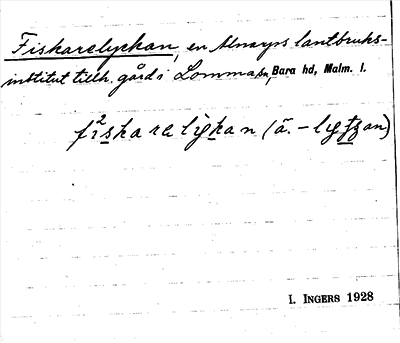 Fiskarelyckan, en Alnarps lantbruks-
institut tillh. gård i Lomma sn, Bara hd, Malm. l.
fi²skarelykan (ä. - lyttan)
I. INGERS 1928